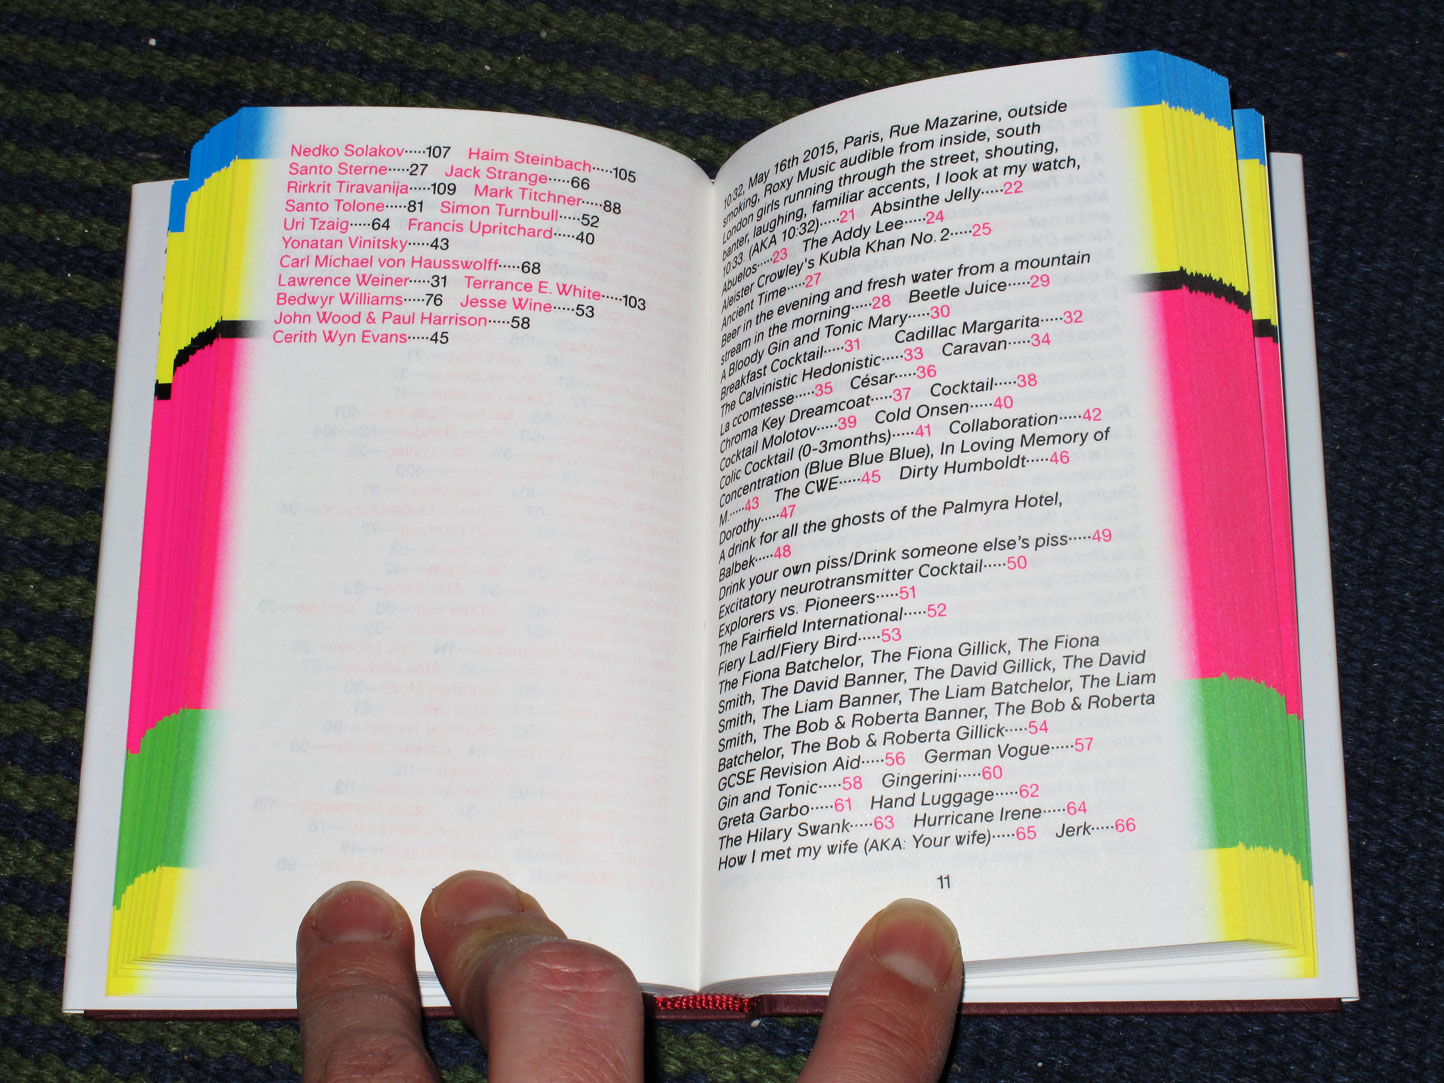 Nedko Solakov·····107 Haim Steinbach·····105
Santo Sterne·····27 Jack Strange·····66
Rirkrit Tiravanija·····109 Mark Titchner·····88
Santo Tolone·····81 Simon Turnbull·····52
Uri Tzaig·····64 Francis Upritchard·····40
Yonatan Vinitsky·····43
Carl Michael von Hausswolff·····68
Lawrence Weiner·····31 Terrance E. White·····103
Bedwyr Williams·····76 Jesse Wine·····53
John Wood & Paul Harrison·····58
Cerith Wyn Evans·····45
10:32, May 16th 2015, Paris, Rue Mazarine, outside
smoking, Roxy Music audible from inside, south
London girls running through the street, shouting,
banter, laughing, familiar accents, I look at my watch,
10:33. (AKA 10:32)·····21 Absinthe Jelly·····22
Abuelos·····23 The Addy Lee·····24
Aleister Crowley's Kubla Khan No. 2·····25
Ancient Time·····27
Beer in the evening and fresh water from a mountain
stream in the morning·····28 Beetle Juice·····29
A Bloody Gin and Tonic Mary·····30
Breakfast Cocktail·····31 Cadillac Margarita·····32
The Calvinistic Hedonistic·····33 Caravan·····34
La ccomtesse·····35 César·····36
Chroma Key Dreamcoat·····37 Cocktail·····38
Cocktail Molotov·····39 Cold Onsen·····40
Colic Cocktail (0–3months)·····41 Collaboration·····42
Concentration (Blue Blue Blue), In Loving Memory of
M.·····43 The CWE·····45 Dirty Humboldt·····46
Dorothy·····47
A drink for all the ghosts of the Palmyra Hotel,
Balbek·····48
Drink your own piss/Drink someone else's piss·····49
Excitatory neurotransmitter Cocktail·····50
Explorers vs. Pioneers·····51
The Fairfield International·····52
Fiery Lad/Fiery Bird·····53
The Fiona Batchelor, The Fiona Gillick, The Fiona
Smith, The David Banner, The David Gillick, The David
Smith, The Liam Banner, The Liam Batchelor, The Liam
Smith, The Bob & Roberta Banner, The Bob & Roberta
Batchelor, The Bob & Roberta Gillick·····54
GCSE Revision Aid·····56 German Vogue·····57
Gin and Tonic·····58 Gingerini·····60
Greta Garbo·····61 Hand Luggage·····62
The Hilary Swank·····63 Hurricane Irene·····64
How I met my wife (AKA: Your wife)·····65 Jerk·····66
11